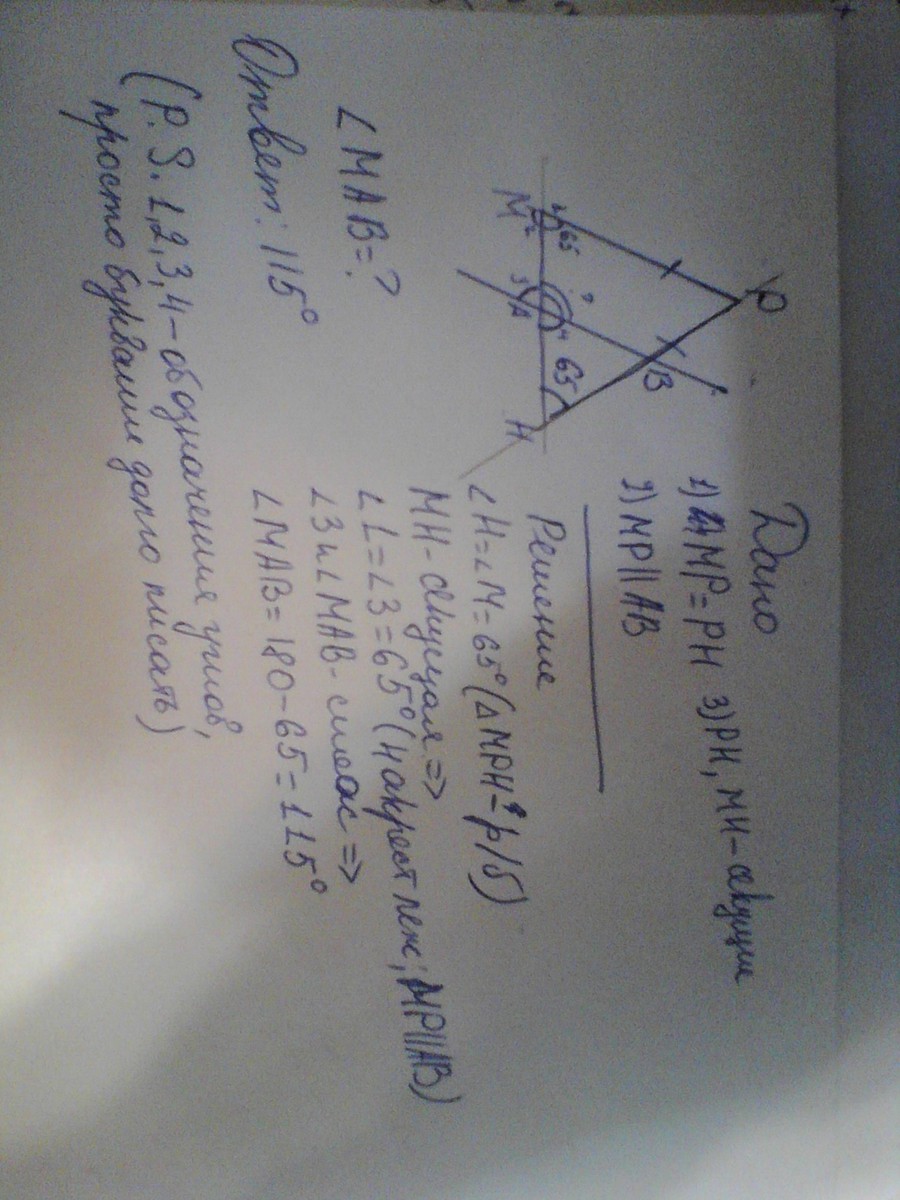 Дано
1) MP=PH 3) PH, MH-секущие
2) MP||AB
Решение
∠H=∠M=65° (△MPH-р/б)
MH-секущая =>
∠1=∠3=65° (накрест леж; MP||AB)
∠3 и ∠MAB-смеж =>
∠MAB=180-65=115°
P
B
M
A
H
1
2
65
3
?
4
65
∠MAB=?
Ответ: 115°
(P.S. 1,2,3,4-обозначения углов,
просто буквами долго писать)